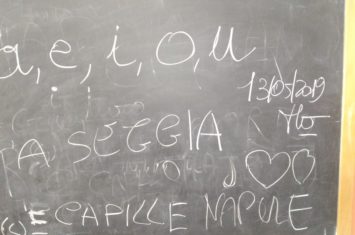 a, e, i, o, u
13/05/2019
'A SEGGIA
E CAPILLE NAPULE